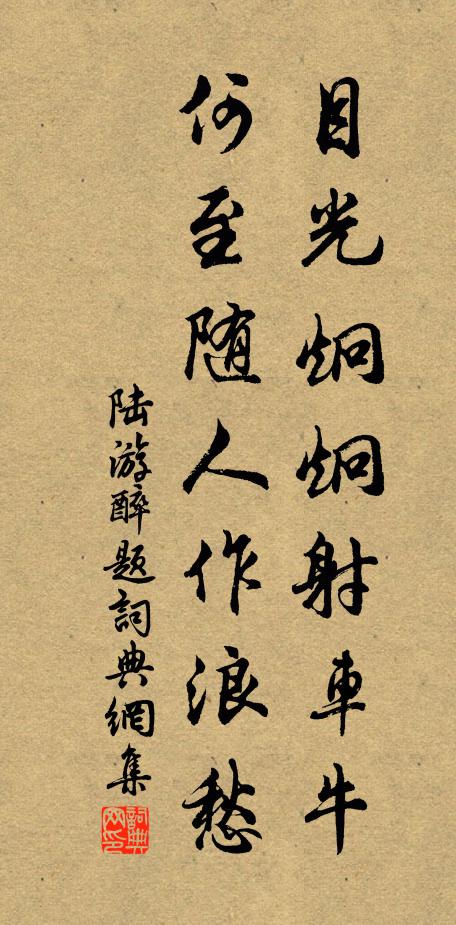 目光炯炯射車牛
何至随人作浪愁
陆游醉题詞典網集
詞典网印